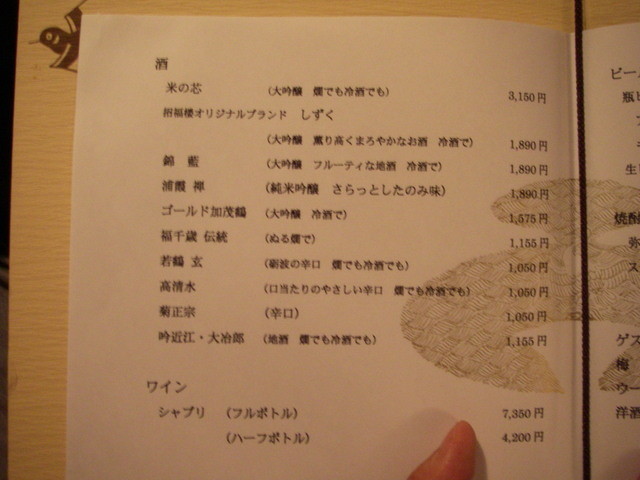 酒
米の芯 (大吟醸 燗でも冷酒でも) 3,150円
招福楼オリジナルブランド しずく
(大吟醸 薫り高くまろやかなお酒 冷酒で) 1,890円
錦 藍 (大吟醸 フルーティな地酒 冷酒で) 1,890円
浦霞 禅 (純米吟醸 さらっとしたのみ味) 1,890円
ゴールド加茂鶴 (大吟醸 冷酒で) 1,575円
福千歳 伝統 (ぬる燗で) 1,155円
若鶴 玄 (砺波の辛口 燗でも冷酒でも) 1,050円
高清水 (口当たりのやさしい辛口 燗でも冷酒でも) 1,050円
菊正宗 (辛口) 1,050円
吟近江・大冶郎 (地酒 燗でも冷酒でも) 1,155円
ワイン
シャブリ (フルボトル) 7,350円
(ハーフボトル) 4,200円
ビー
瓶
生
焼酎
弥
ス
ゲス
梅
ウー
洋酒